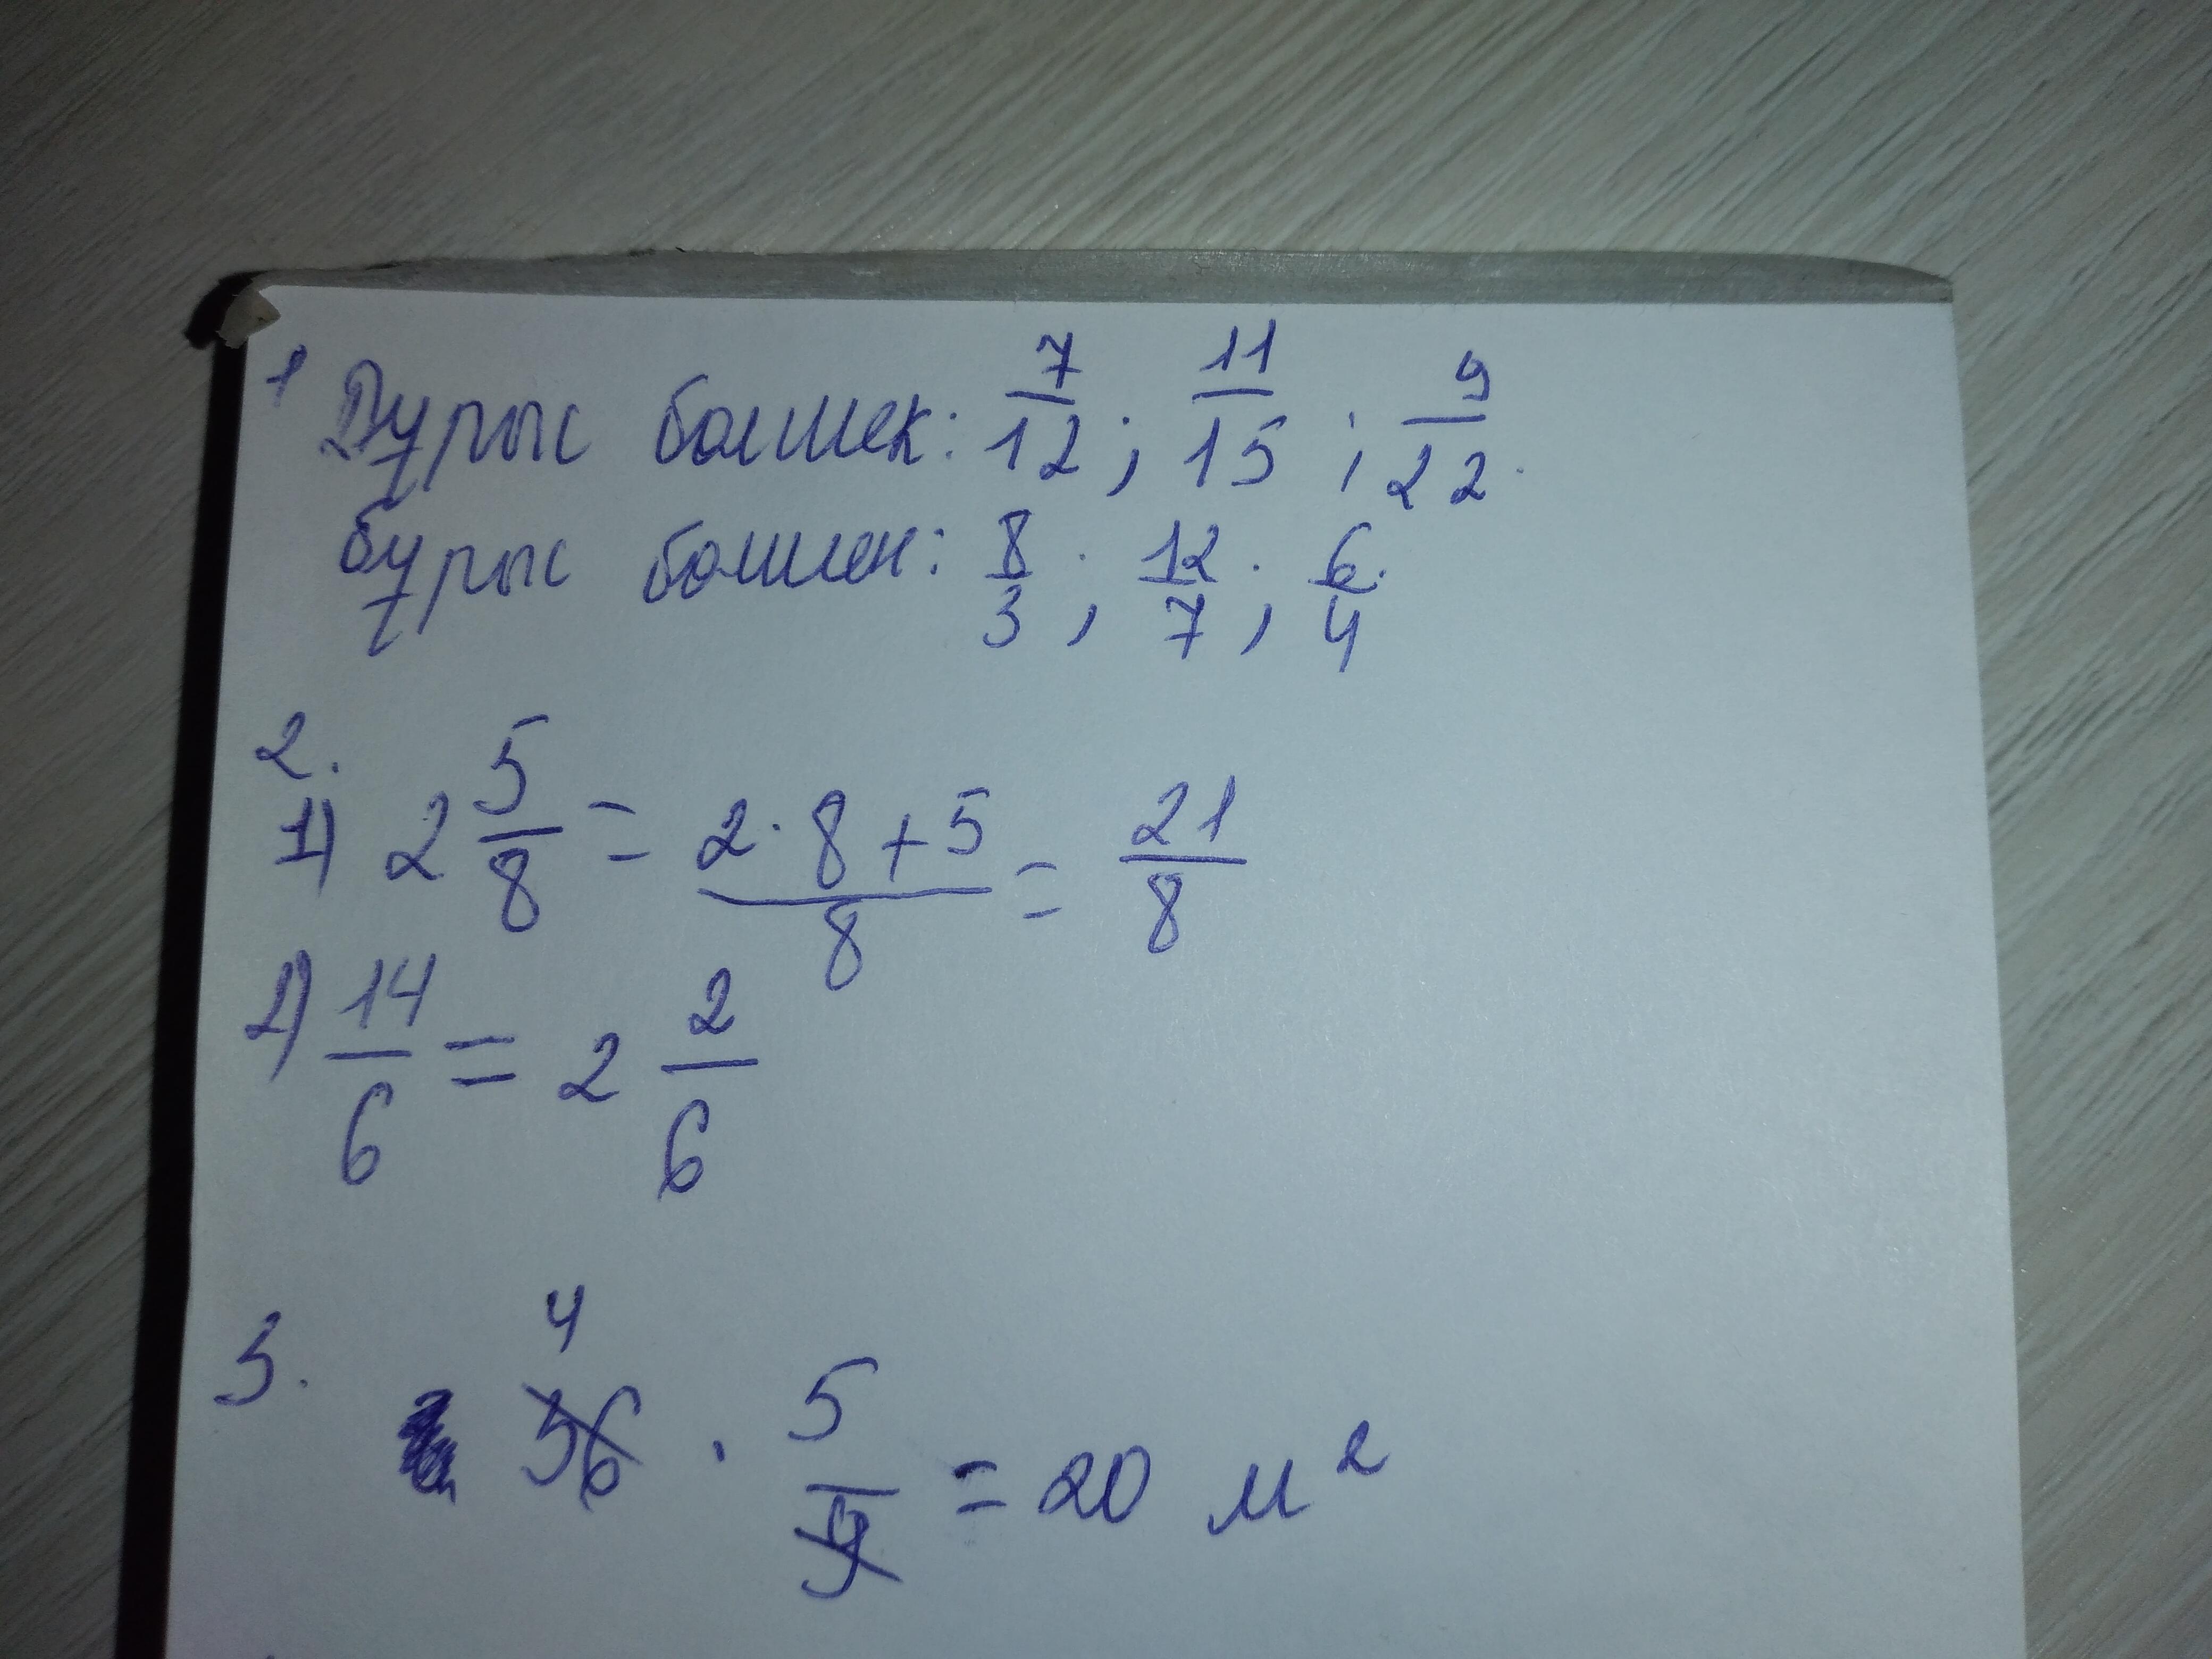 1 Дұрыс бөлшек: 7/12; 11/15; 9/22.
бұрыс бөлшек: 8/3; 12/7; 6/4.
2.
1) 2 5/8 = (2·8+5)/8 = 21/8
2) 14/6 = 2 2/6
4
3. 36 · 5/9 = 20 м²